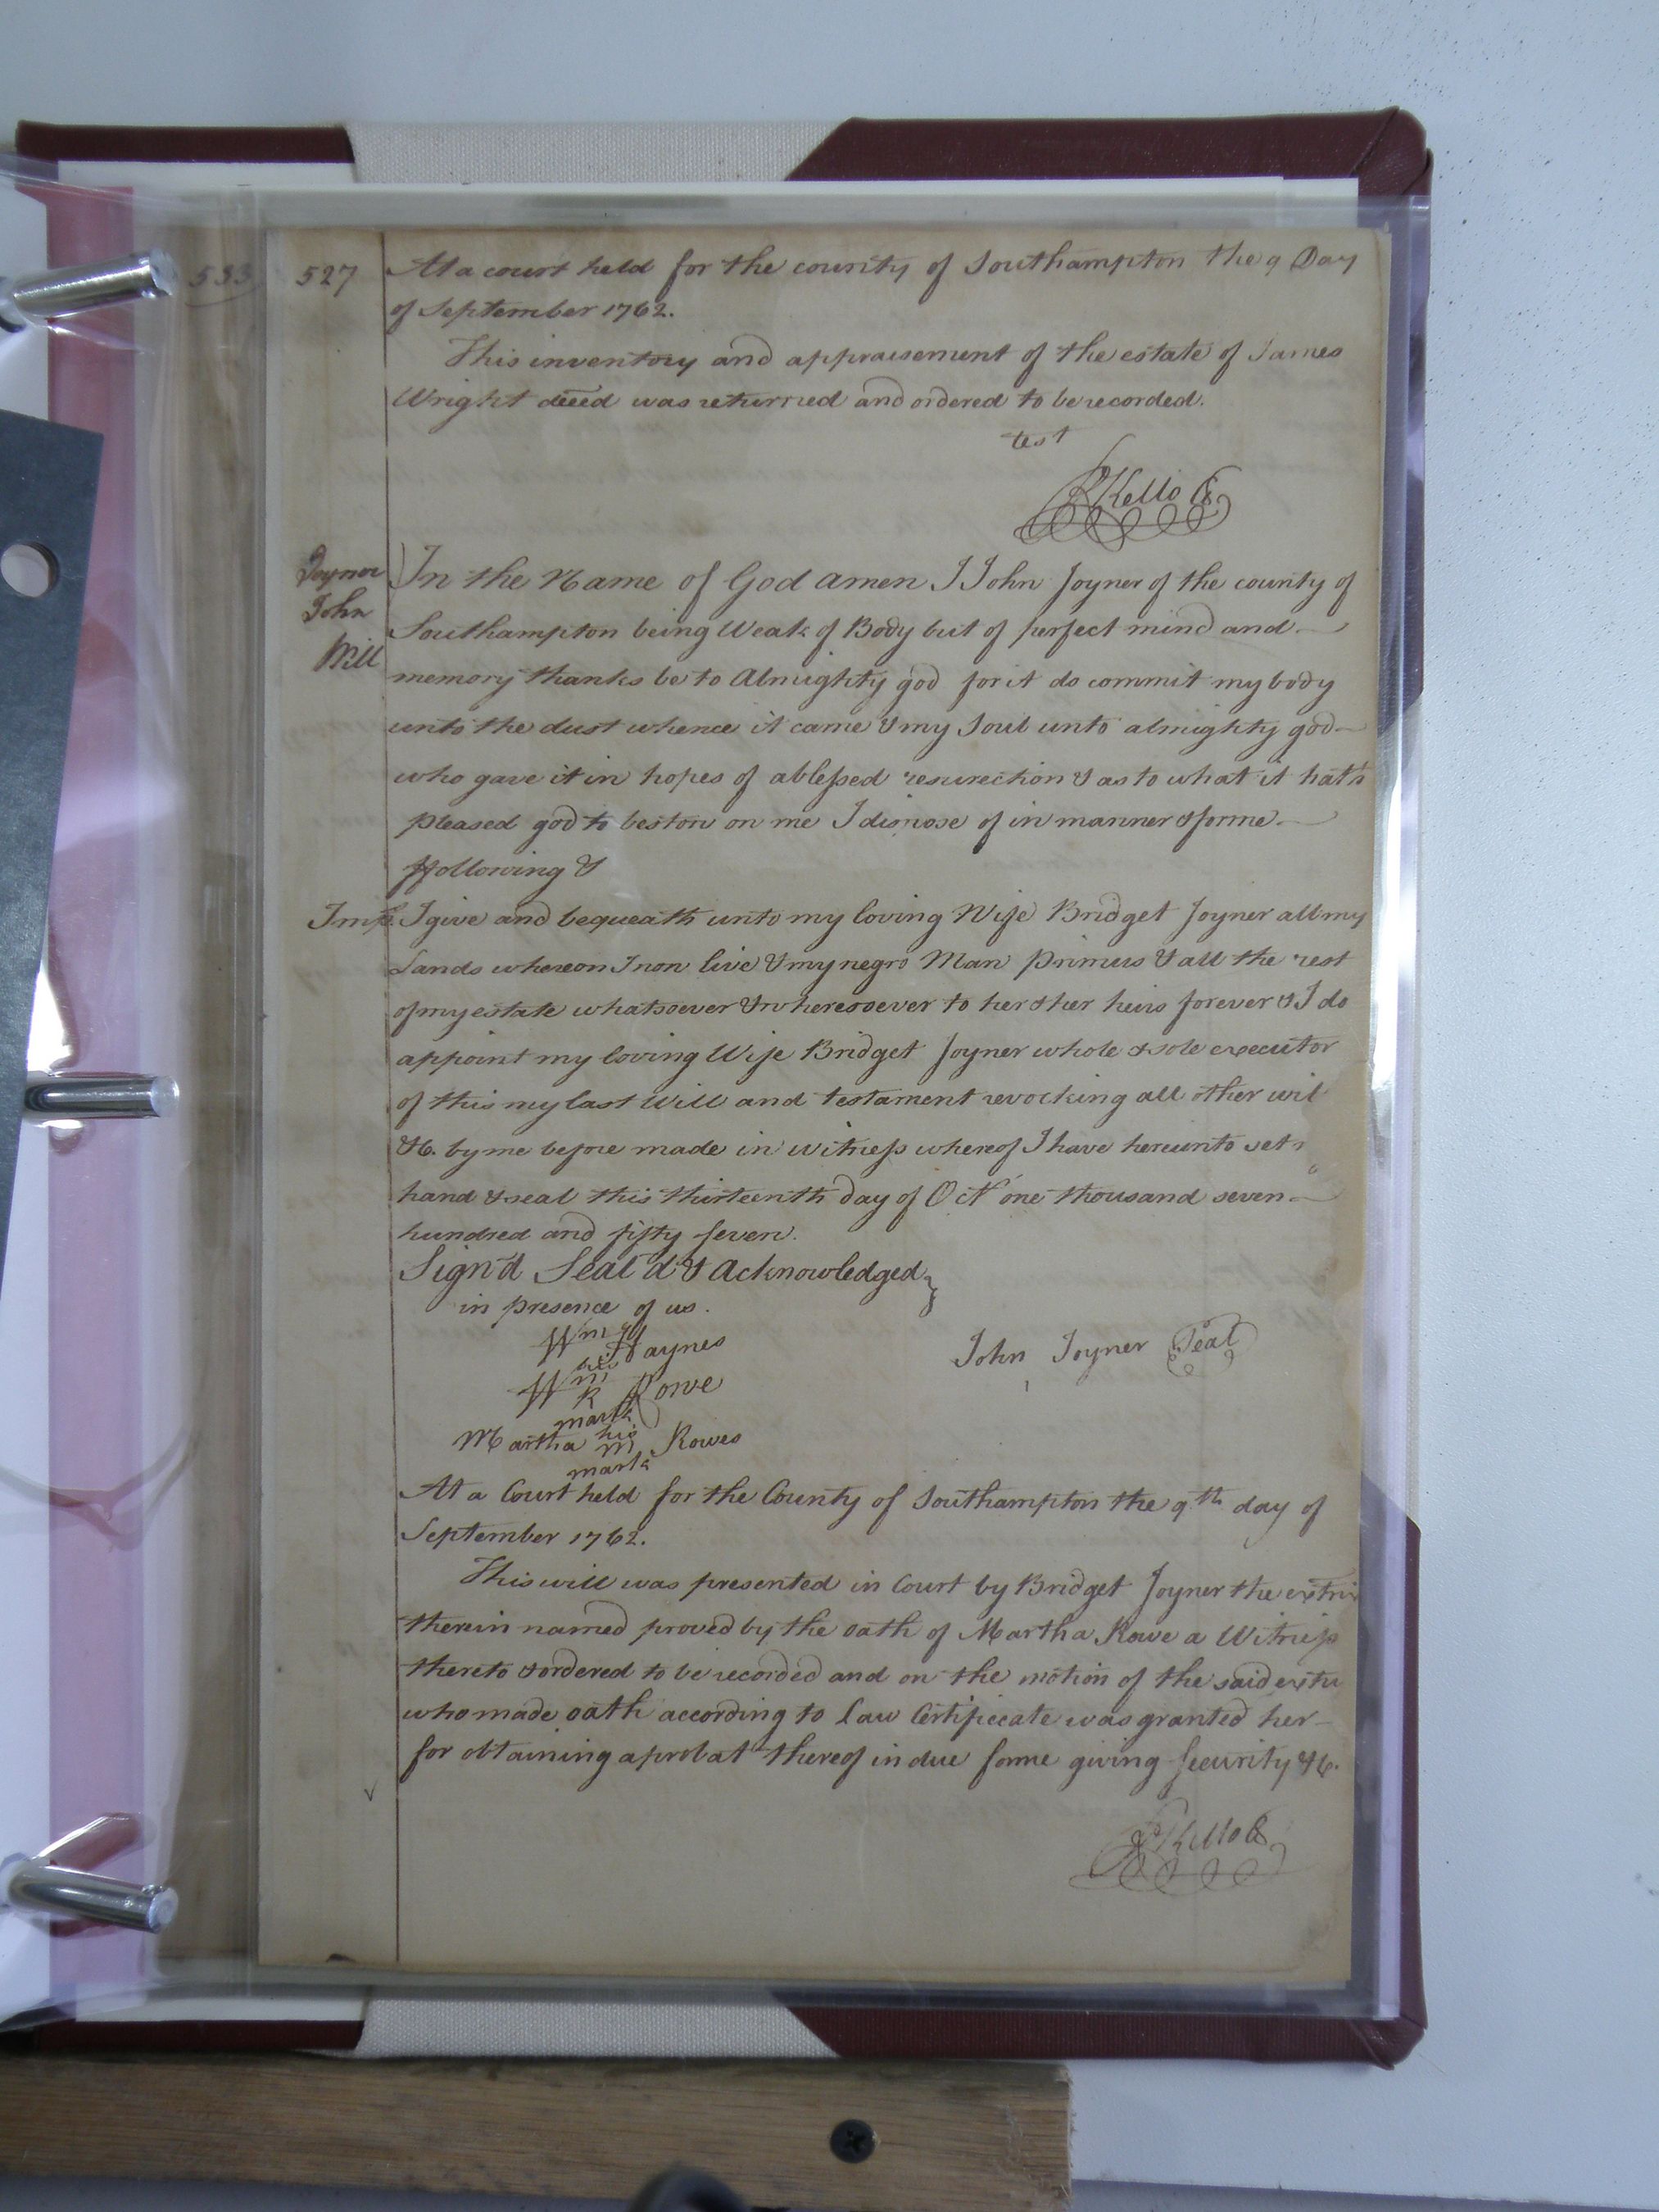 533 527 At a court held for the county of Southampton the 9 Day
of September 1762.
This inventory and appraisement of the estate of James
Wright deced was returned and ordered to be recorded.
test
R Kello C
Joyner
John
Will
In the Name of God amen I John Joyner of the county of
Southampton being Weak of Body but of perfect mind and
memory thanks be to Almighty god for it do commit my body
unto the dust whence it came & my Soul unto almighty god
who gave it in hopes of a blessed resurection & as to what it hath
pleased god to bestow on me I dispose of in manner & forme
ffollowing &
Imps. I give and bequeath unto my loving Wife Bridget Joyner all my
Lands whereon I now live & my negro Man Primus & all the rest
of my estate whatsoever & wheresoever to her & her heirs forever & I do
appoint my loving Wife Bridget Joyner whole & sole executor
of this my last Will and testament revocking all other wil
&c. by me before made in witness whereof I have hereunto set
hand & seal this thirteenth day of Oct one thousand seven
hundred and fifty seven.
Sign'd Seal'd & Acknowledged
in presence of us.
Wm Haynes
John Joyner Seal
his
Wm R Rowe
mark
his
Martha M Rowes
mark
At a Court held for the County of Southampton the 9th day of
September 1762.
This will was presented in Court by Bridget Joyner the extrix
therein named proved by the oath of Martha Rowe a Witness
thereto & ordered to be recorded and on the motion of the said extri
who made oath according to law Certificcate was granted her
for obtaining a probat thereof in due forme giving security &c.
R Kello C